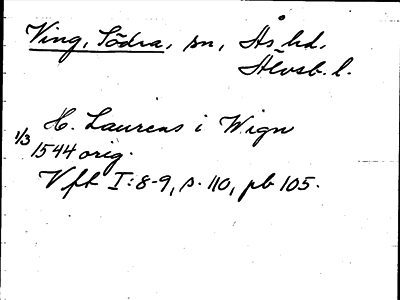 Ving, Södra, sn, Ås hd.
Älvsb. l.
H. Laurens i Wign
1/3
1544 orig.
Vfft I:8-9, s. 110, pb 105.